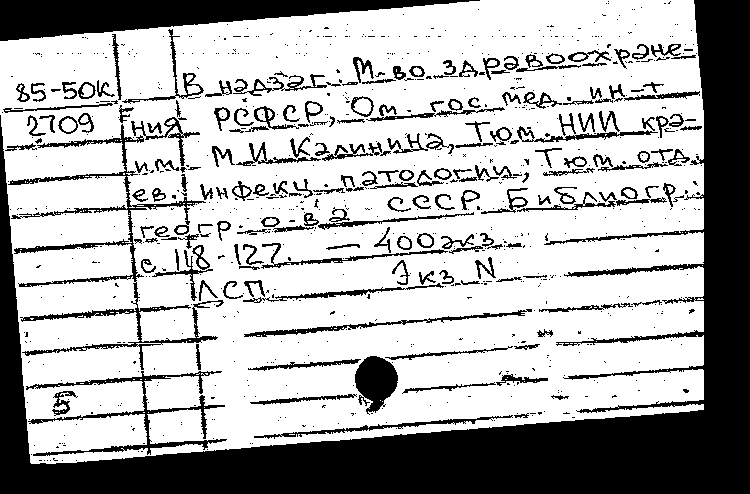 85-50К В надзаг.: М-во здравоохране-
2709 ния РСФСР, Ом. гос. мед. ин-т
им. М.И. Калинина, Тюм. НИИ кра-
ев. инфекц. патологии; Тюм. отд.
геогр. о-ва СССР. Библиогр.:
с. 118-127. — 400экз.
ДСП. Экз N
Б